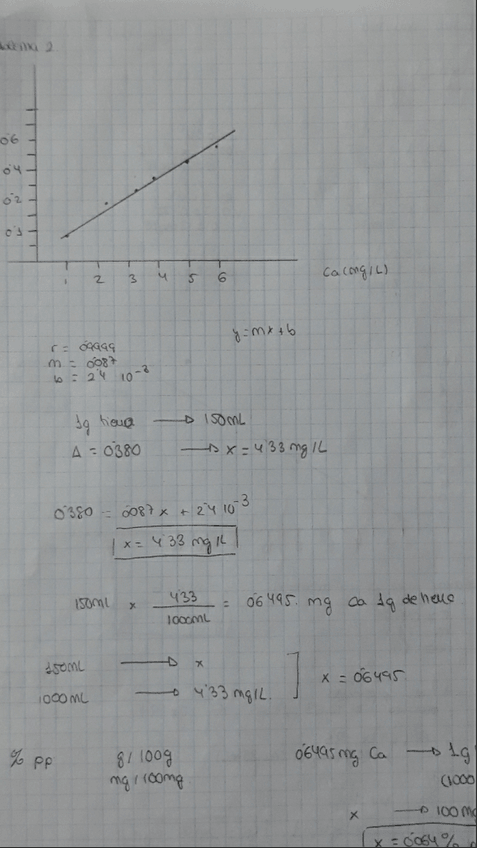 2
0'6
0'4
0'2
0'1
1 2 3 4 5 6
Ca (mg/L)
y = mx + b
r = 0'9999
m = 0'087
b = 2'4 10⁻³
1g → 150mL
A = 0'380 → x = 4'33 mg/L
0'380 = 0'087x + 2'4 10⁻³
x = 4'33 mg/L
150mL x 4'33 / 1000mL = 0'6495 mg Ca 1g de
150mL → x
1000mL → 4'33 mg/L
x = 0'6495
% pp g/100g 0'6495 mg Ca → 1g
mg/100mg (1000
x → 100 mg
x = 0'064%